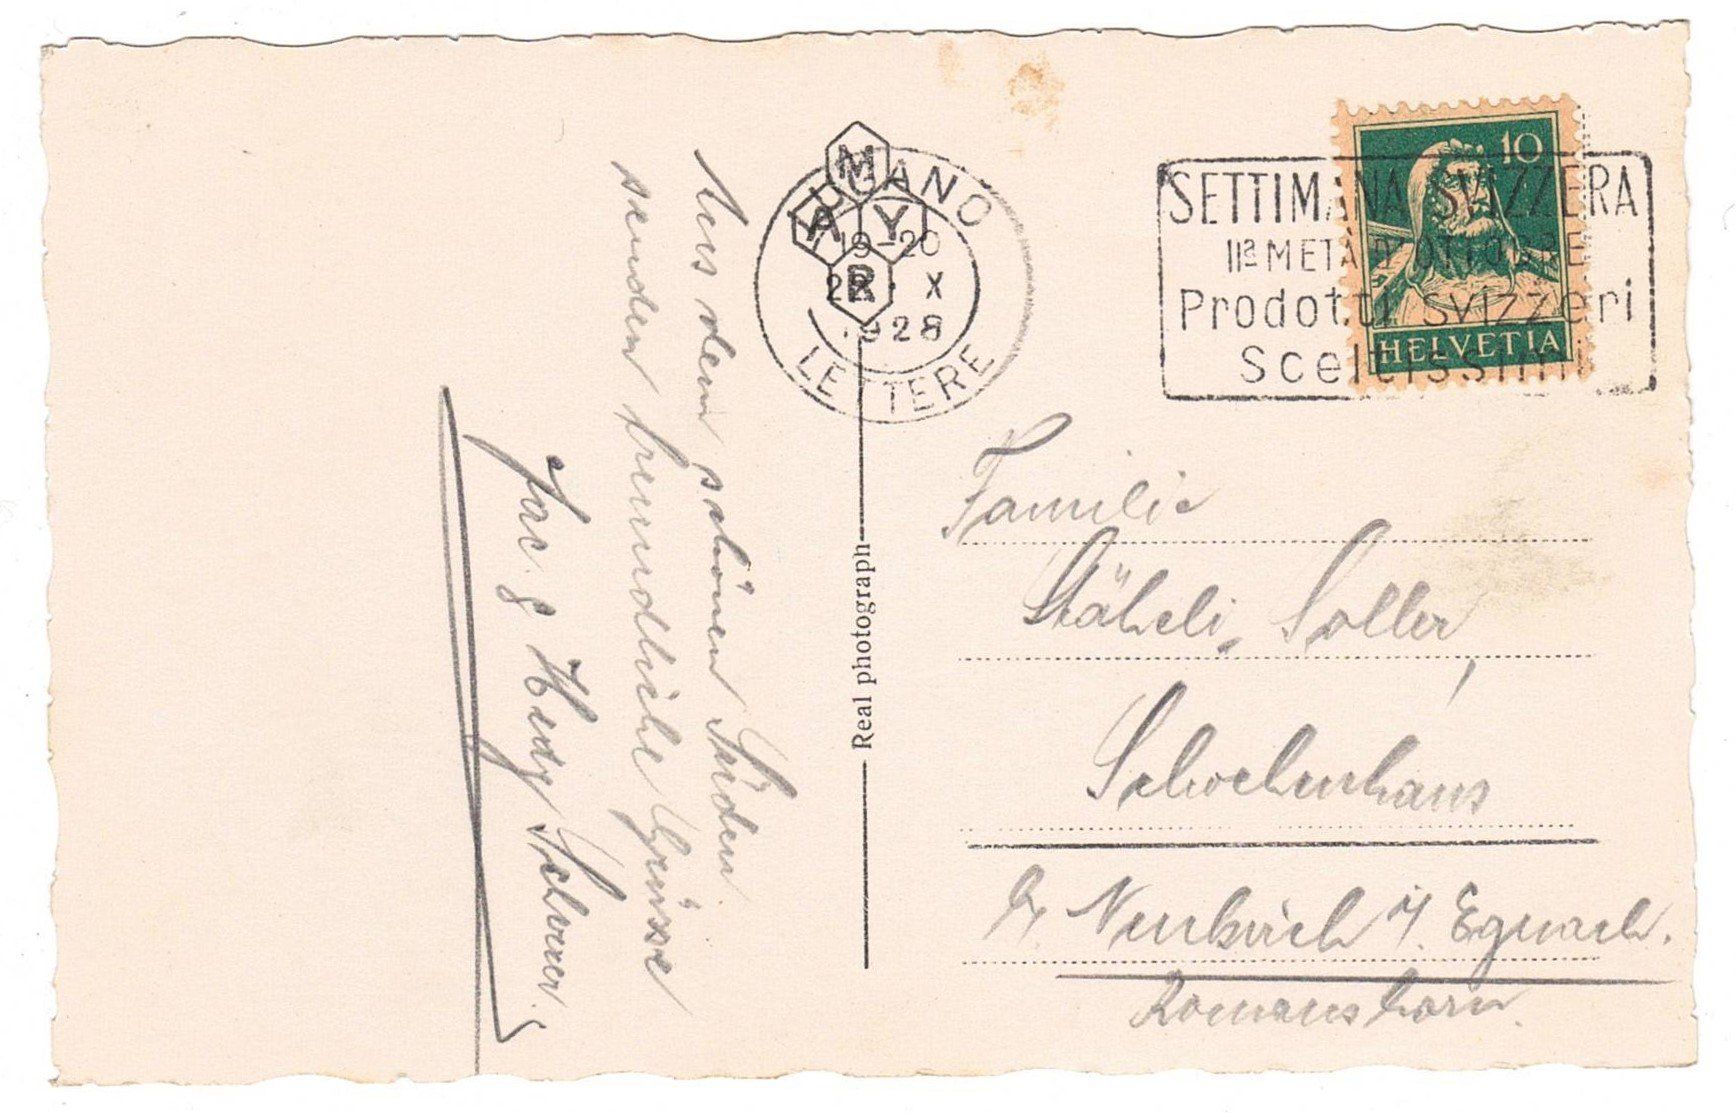 Aus dem schönen Süden
senden freundliche Grüsse
Jac. & Hedy Scherrer.
LUGANO
19-20
X
1928
LETTERE
M
A Y
R
SETTIMANA SVIZZERA
IIª METÀ D'OTTOBRE
Prodotti svizzeri
Sceltissimi
10
HELVETIA
Real photograph
Familie
Stäheli, Soller,
Schochenhaus
b/ Neukirch i/. Egnach.
Romanshorn.